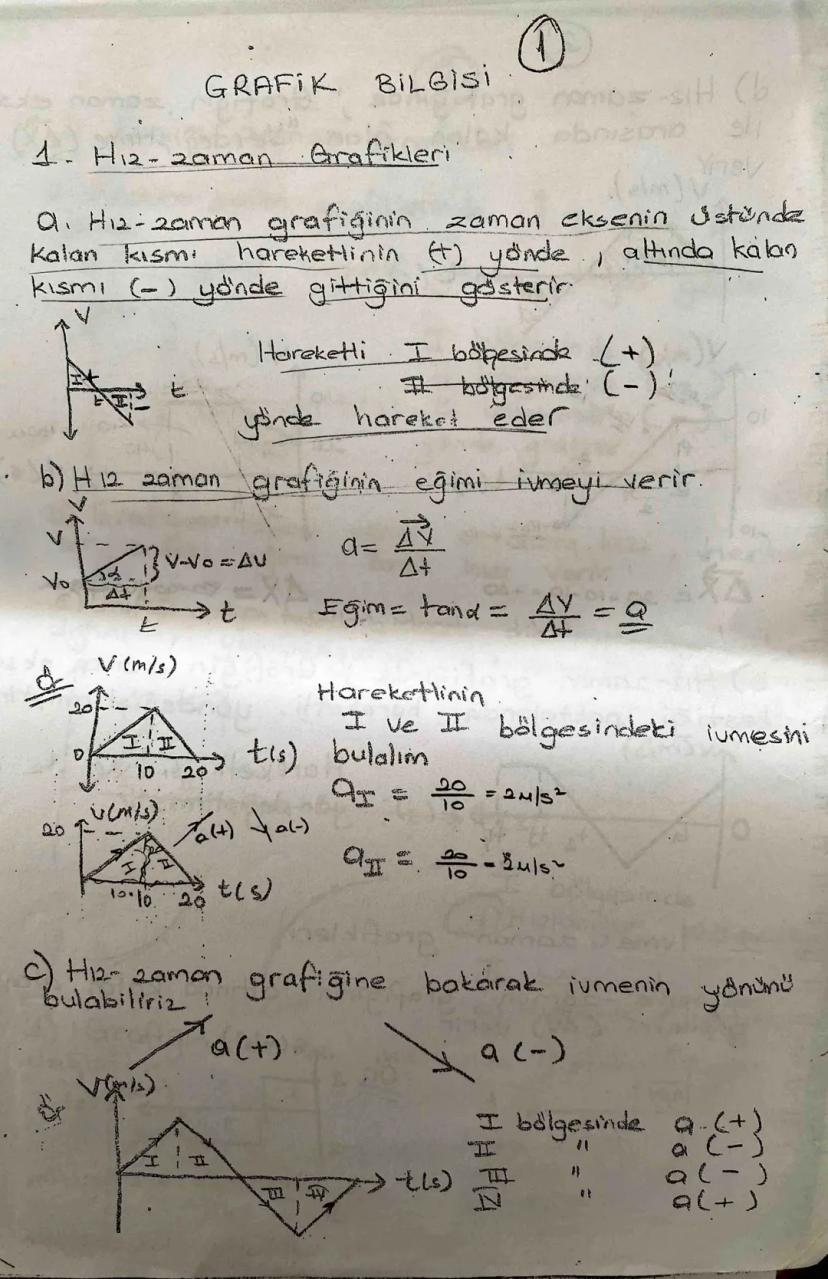 1
GRAFİK BİLGİSİ
1. Hız-zaman Grafikleri
a. Hız-zaman grafiğinin zaman eksenin üstünde
kalan kısmı hareketlinin (+) yönde, altında kalan
kısmı (-) yönde gittiğini gösterir.
V
I
t
II
t
Hareketli I bölgesinde (+)
II bölgesinde (-)
yönde hareket eder
b) Hız zaman grafiğinin eğimi ivmeyi verir.
V
V
V0
α
Δt
V-V0 = ΔV
t
t
a = ΔV/Δt
Eğim = tanα = ΔV/Δt = a
Ör
V (m/s)
20
0
I II
10 20
t(s)
Hareketlinin
I ve II bölgesindeki ivmesini
bulalım
aI = 20/10 = 2m/s²
V(m/s)
20
I II
10 10 20
t(s)
a(+) a(-)
aII = 20/10 = 2m/s²
c) Hız-zaman grafiğine bakarak ivmenin yönünü
bulabiliriz
a(+)
a (-)
Ör
V(m/s)
I II
III IV
t(s)
I bölgesinde a (+)
II " a (-)
III " a(-)
IV " a(+)